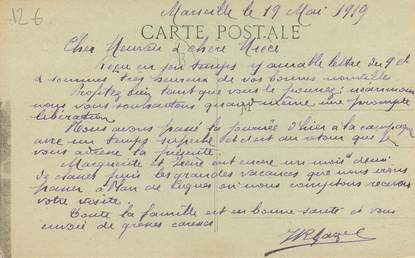 12€
Marseille le 19 Mai 1919
CARTE POSTALE
Cher Neveu & chère Nièce
Reçu en son temps v/ aimable lettre du 9 ct
& sommes très heureux de vos bonnes nouvelles
Profitez bien tant que vous le pouvez; néanmoins
nous vous souhaitons quand même une prompte
libération
Nous avons passé la journée d'hier à la campagne
avec un temps superbe et c'est du que je
vous adresse la présente
Marguerite et Pierre ont encore un mois & demi
de classe puis les grandes vacances que nous irons
passer à Plan de Cuques où nous comptons recevoir
votre visite
Toute la famille est en bonne santé et vous
envoie de grosses caresses